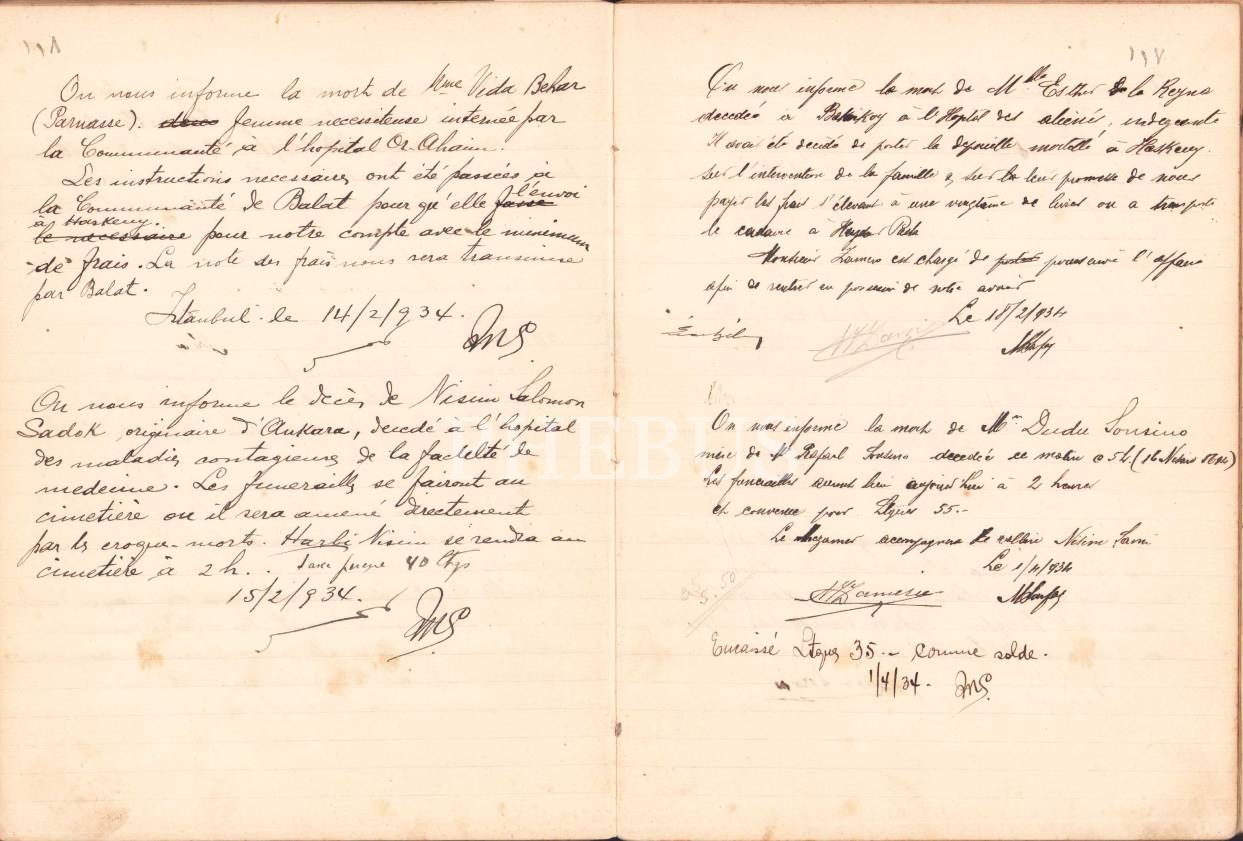 ١١٨
On nous informe la mort de Mme Vida Behar
(Parnasse). femme necessiteuse internée par
la Communauté, à l'hopital Or-Ahaim.
Les instructions necessaires ont été passées à
la Communauté de Balat pour qu'elle fasse l'envoi
à Haskeuy.
le necessaire pour notre compte avec le minimum
de frais. La note des frais nous sera transmise
par Balat.
Istanbul le 14/2/934.
MS
On nous informe le décès de Nisim Salomon
Sadok, originaire d'Ankara, decedé à l'hopital
des maladies contagieuses de la faculté de
medecine. Les funerailles se fairont au
cimetière ou il sera amené directement
par les croque-morts. Harbi Nisim se rendra au
cimetière à 2 h.. 40 Ltqs
15/2/934.
MS
١١٧
On nous informe la mort de Mlle Esther de la Reyna
decedée à Bakirkoy à l'Hopital des aliénés, indegeante
Il avait été décidé de porter la depouille mortelle à Haskeuy.
Sur l'intervention de la famille et sur leur promesse de nous
payer les frais s'élevant à une vingtaine de livres on a transporté
le cadavre à Haydar Pacha
Monsieur est chargé de poursuivre l'affaire
afin de rentrer en possession de notre avoir
Le 18/2/934
On nous informe la mort de Mme Dudu Sonsino
mere de Mr Rafael Sonsino decedée ce matin a 5h. (16 Nisan 5694)
Les funerailles auront lieu aujourd'hui à 2 heures
et convenu pour Ltqs 55.-
Le accompagnera le rabbin Nisim
Le 1/4/934
5.50
Encaissé Ltqs 35.- comme solde.
1/4/34- MS.
PHEBUS